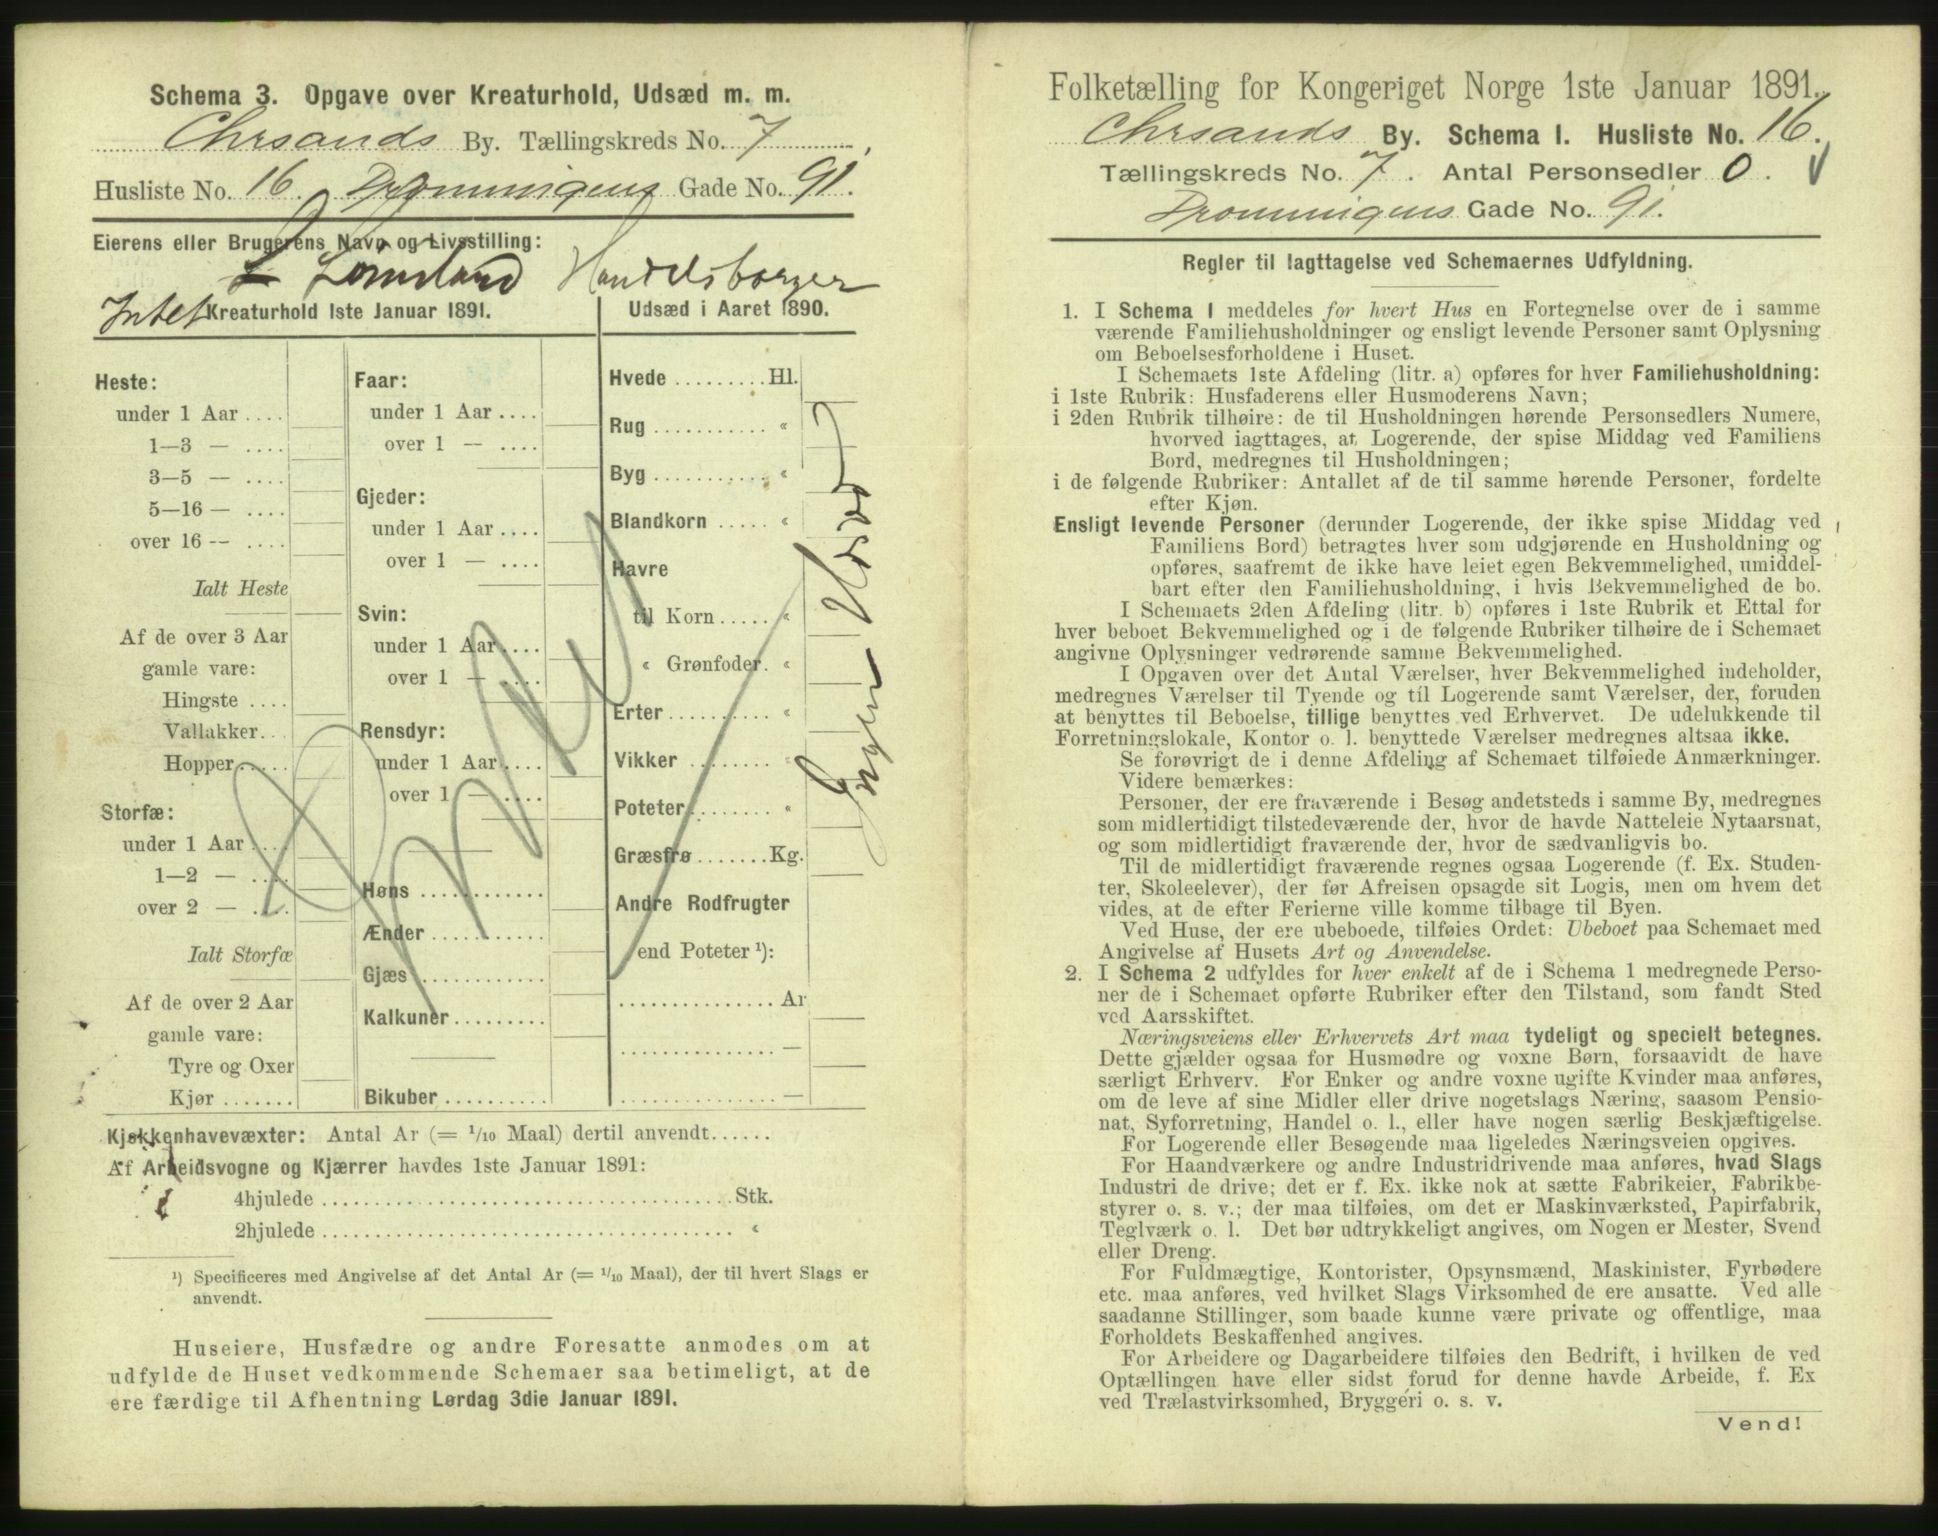 Schema 3. Opgave over Kreaturhold, Udsæd m. m.
Chrsands By. Tællingskreds No. 7
Husliste No. 16. Dronningens Gade No. 91.
Eierens eller Brugerens Navn og Livsstilling:
Handelsborger
Intet Kreaturhold 1ste Januar 1891.
Heste:
under 1 Aar ....
1—3 — ....
3—5 — ....
5—16 — ....
over 16 — ....
Ialt Heste
Af de over 3 Aar
gamle vare:
Hingste ....
Vallakker...
Hopper.....
Storfæ:
under 1 Aar ....
1—2 — ....
over 2 — ....
Ialt Storfæ
Af de over 2 Aar
gamle vare:
Tyre og Oxer
Kjør .......
Faar:
under 1 Aar ....
over 1 — ....
Gjeder:
under 1 Aar ....
over 1 — ....
Svin:
under 1 Aar ....
over 1 — ....
Rensdyr:
under 1 Aar ....
over 1 — ....
Høns ...........
Ænder ..........
Gjæs ...........
Kalkuner.........
Bikuber ..........
Udsæd i Aaret 1890.
Hvede .........Hl.
Rug ........... «
Byg ........... «
Blandkorn ..... «
Havre
til Korn..... «
« Grønfoder. «
Erter.......... «
Vikker ........ «
Poteter........ «
Græsfrø .......Kg.
Andre Rodfrugter
end Poteter ¹):
............... Ar
............... —
............... —
Ingen
Kjøkkenhavevæxter: Antal Ar (= 1/10 Maal) dertil anvendt......
Af Arbeidsvogne og Kjærrer havdes 1ste Januar 1891:
4hjulede ......................................Stk.
2hjulede ...................................... «
¹) Specificeres med Angivelse af det Antal Ar (= 1/10 Maal), der til hvert Slags er
anvendt.
Huseiere, Husfædre og andre Foresatte anmodes om at
udfylde de Huset vedkommende Schemaer saa betimeligt, at de
ere færdige til Afhentning Lørdag 3die Januar 1891.
Folketælling for Kongeriget Norge 1ste Januar 1891.
Chrsands By. Schema I. Husliste No. 16.
Tællingskreds No. 7. Antal Personsedler 0.
Dronningens Gade No. 91.
Regler til Iagttagelse ved Schemaernes Udfyldning.
1. I Schema I meddeles for hvert Hus en Fortegnelse over de i samme
værende Familiehusholdninger og ensligt levende Personer samt Oplysning
om Beboelsesforholdene i Huset.
I Schemaets 1ste Afdeling (litr. a) opføres for hver Familiehusholdning:
i 1ste Rubrik: Husfaderens eller Husmoderens Navn;
i 2den Rubrik tilhøire: de til Husholdningen hørende Personsedlers Numere,
hvorved iagttages, at Logerende, der spise Middag ved Familiens
Bord, medregnes til Husholdningen;
i de følgende Rubriker: Antallet af de til samme hørende Personer, fordelte
efter Kjøn.
Ensligt levende Personer (derunder Logerende, der ikke spise Middag ved
Familiens Bord) betragtes hver som udgjørende en Husholdning og
opføres, saafremt de ikke have leiet egen Bekvemmelighed, umiddel-
bart efter den Familiehusholdning, i hvis Bekvemmelighed de bo.
I Schemaets 2den Afdeling (litr. b) opføres i 1ste Rubrik et Ettal for
hver beboet Bekvemmelighed og i de følgende Rubriker tilhøire de i Schemaet
angivne Oplysninger vedrørende samme Bekvemmelighed.
I Opgaven over det Antal Værelser, hver Bekvemmelighed indeholder,
medregnes Værelser til Tyende og til Logerende samt Værelser, der, foruden
at benyttes til Beboelse, tillige benyttes ved Erhvervet. De udelukkende til
Forretningslokale, Kontor o. l. benyttede Værelser medregnes altsaa ikke.
Se forøvrigt de i denne Afdeling af Schemaet tilføiede Anmærkninger.
Videre bemærkes:
Personer, der ere fraværende i Besøg andetsteds i samme By, medregnes
som midlertidigt tilstedeværende der, hvor de havde Natteleie Nytaarsnat,
og som midlertidigt fraværende der, hvor de sædvanligvis bo.
Til de midlertidigt fraværende regnes ogsaa Logerende (f. Ex. Studen-
ter, Skoleelever), der før Afreisen opsagde sit Logis, men om hvem det
vides, at de efter Ferierne ville komme tilbage til Byen.
Ved Huse, der ere ubeboede, tilføies Ordet: Ubeboet paa Schemaet med
Angivelse af Husets Art og Anvendelse.
2. I Schema 2 udfyldes for hver enkelt af de i Schema 1 medregnede Perso-
ner de i Schemaet opførte Rubriker efter den Tilstand, som fandt Sted
ved Aarsskiftet.
Næringsveiens eller Erhvervets Art maa tydeligt og specielt betegnes.
Dette gjælder ogsaa for Husmødre og voxne Børn, forsaavidt de have
særligt Erhverv. For Enker og andre voxne ugifte Kvinder maa anføres,
om de leve af sine Midler eller drive nogetslags Næring, saasom Pensio-
nat, Syforretning, Handel o. l., eller have nogen særlig Beskjæftigelse.
For Logerende eller Besøgende maa ligeledes Næringsveien opgives.
For Haandværkere og andre Industridrivende maa anføres, hvad Slags
Industri de drive; det er f. Ex. ikke nok at sætte Fabrikeier, Fabrikbe-
styrer o. s. v.; der maa tilføies, om det er Maskinværksted, Papirfabrik,
Teglværk o. l. Det bør udtrykkeligt angives, om Nogen er Mester, Svend
eller Dreng.
For Fuldmægtige, Kontorister, Opsynsmænd, Maskinister, Fyrbødere
etc. maa anføres, ved hvilket Slags Virksomhed de ere ansatte. Ved alle
saadanne Stillinger, som baade kunne være private og offentlige, maa
Forholdets Beskaffenhed angives.
For Arbeidere og Dagarbeidere tilføies den Bedrift, i hvilken de ved
Optællingen have eller sidst forud for denne havde Arbeide, f. Ex
ved Trælastvirksomhed, Bryggeri o. s. v.
Vend!